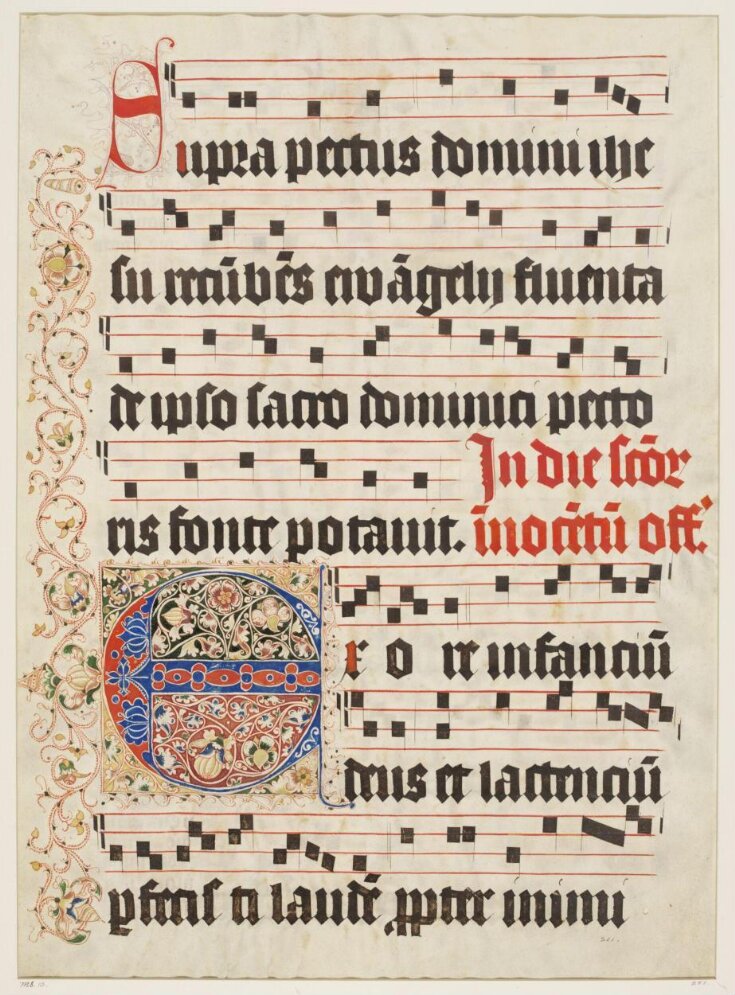 Supra pectus domini ihe
su recūbēs ewāgelij fluenta
de ipso sacro dominici pecto
ris fonte potauit. In die sctōr
īnocētū off.
Ex o re infanciū
deus et lactenciū
ꝑfecisti laudē ꝓpter inimi
MS. 10.